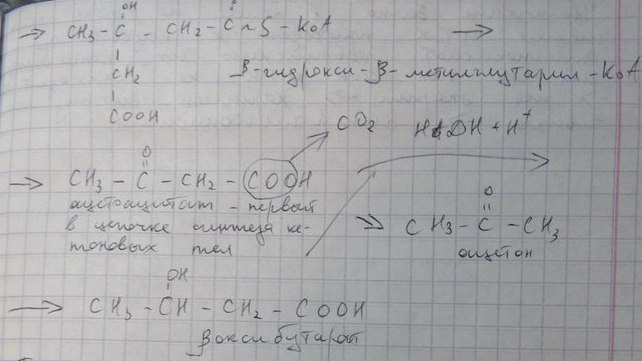 OH O
→ CH3 - C - CH2 - C ~ S - KoA →
CH2
COOH
β-гидрокси-β-метилглутарил-КоА
CO2 НАДН + H+
O
→ CH3 - C - CH2 - COOH
ацетоацитат - первый
в цепочке синтеза ке-
тоновых тел
O
⇒ CH3 - C - CH3
ацетон
OH
→ CH3 - CH - CH2 - COOH
β окси бутарат